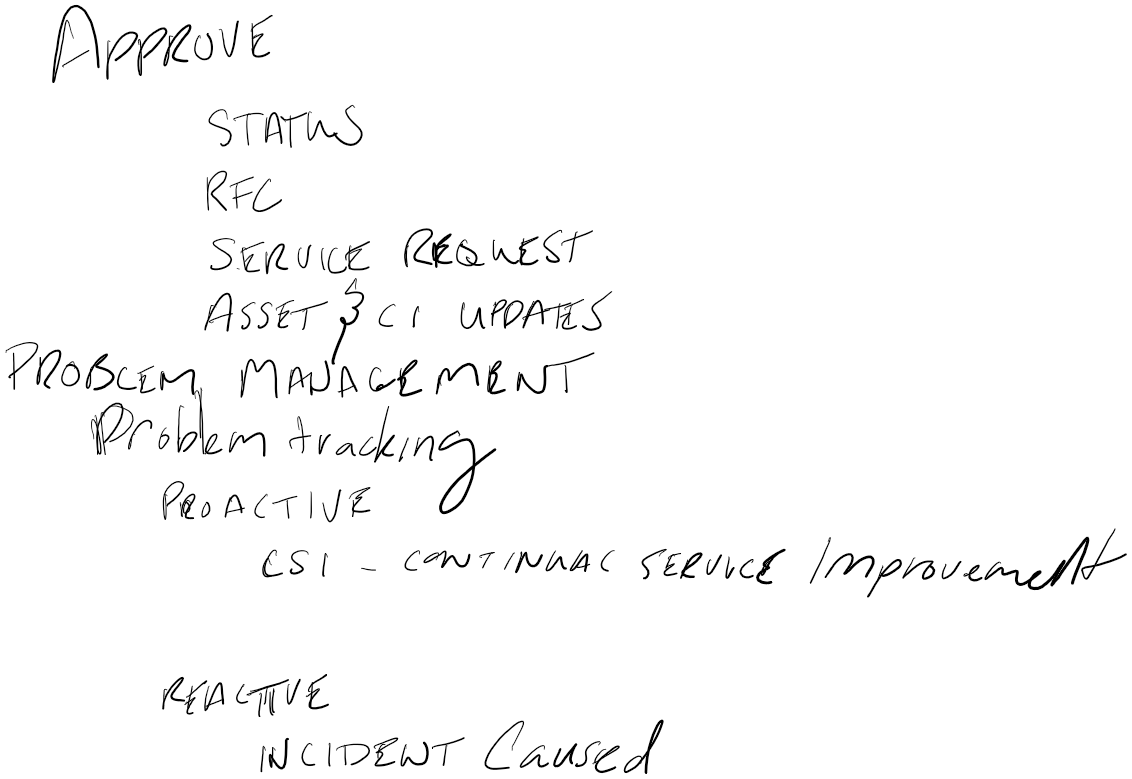 APPROVE
STATUS
RFC
SERVICE REQUEST
ASSET & CI UPDATES
PROBLEM MANAGEMENT
Problem tracking
PROACTIVE
CSI - CONTINUAL SERVICE Improvement
REACTIVE
INCIDENT Caused